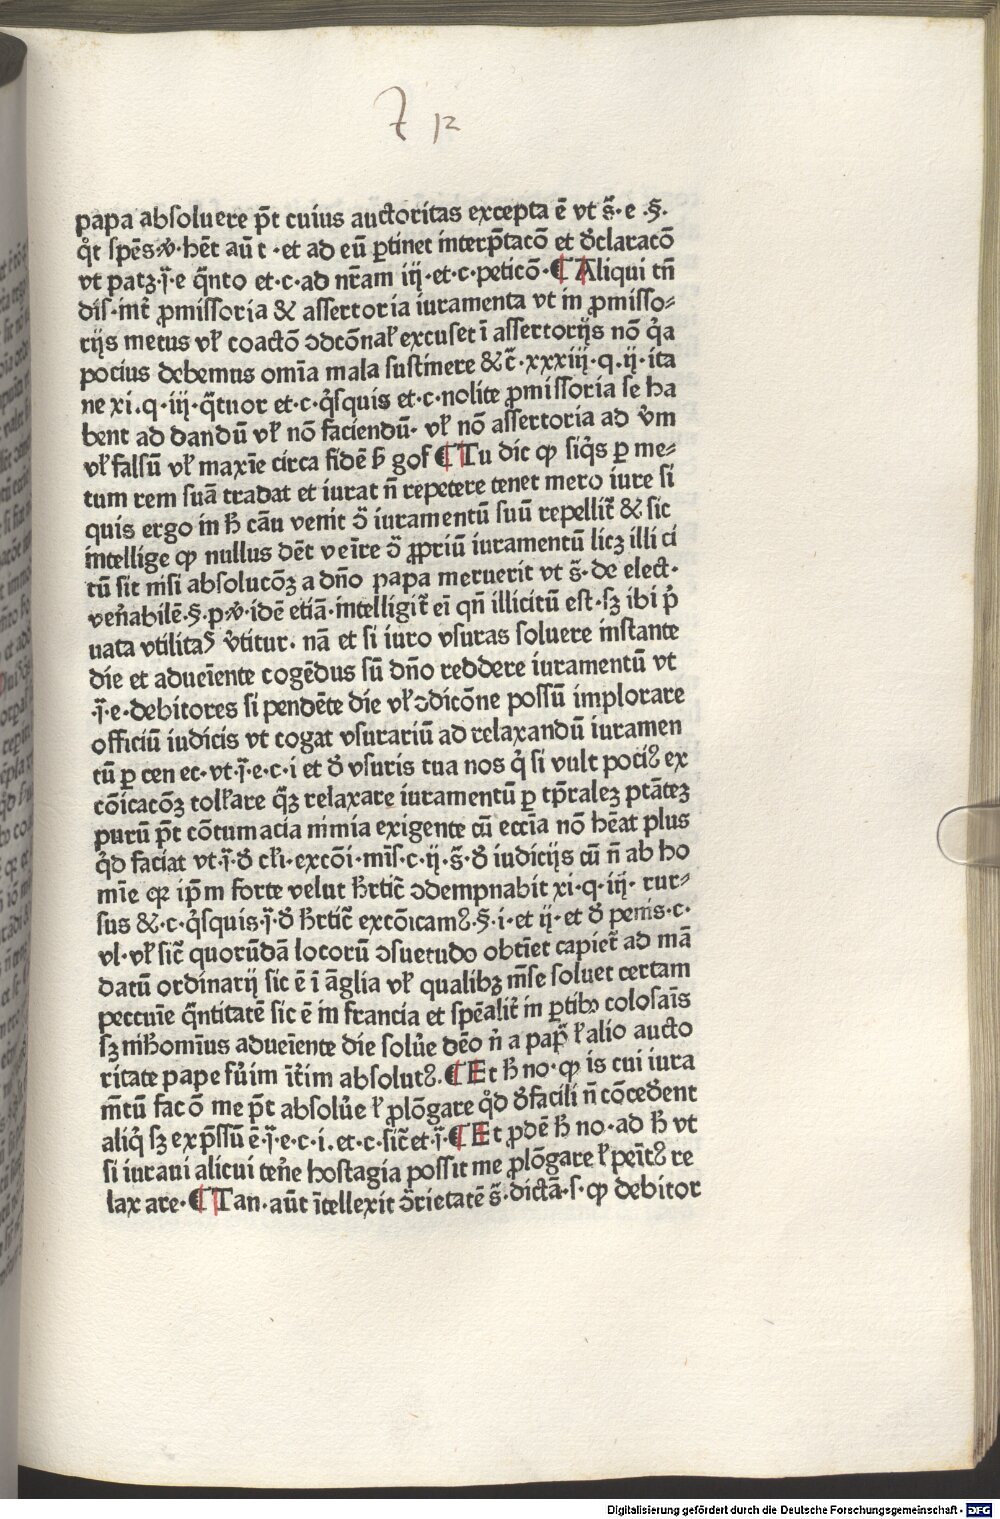 7 12
papa absoluere p̄t cuius auctoritas excepta ē vt s̄·e·§·
q̇t spēs·v̇·hēt aūt·et ad eū ꝑtinet interp̄tacō et d̄claracō
vt patꝫ·j̄·e q̄nto et·c·ad nr̄am iij·et·c·peticō·¶Aliqui tn̄
dīs·int̄ ꝓmissoria & assertoria iuramenta vt in ꝓmisso⸗
rijs metus vł coactō ↄdcōnał excuset ī assertorijs nō q̇a
pocius debemus om̄ia mala sustinere &c̄·xxxiij·q·ij·ita
ne xi.q·iij·q̄tuor et·c·q̇squis et·c·nolite ꝓmissoria se ha
bent ad dandū vł nō faciendū· vł nō assertoria ad v̇m
vł falsū vł maxīe circa fidē ẜ gof ¶Tu dic ꝙ siq̇s ꝑ me⸗
tum rem suā tradat et iurat n̄ repetere tenet mero iure si
quis ergo in ħ cāu venit ↄ̄ iuramentū suū repellit̄ & sic
intellige ꝙ nullus dēt veīre ↄ̄ ꝓpriū iuramentū licꝫ illici
tū sit nisi absolucōꝫ a dn̄o papa meruerit vt s̄·de elect·
ven̄abilē·§·p·v̇·idē etiā·intelligit̄ eī qn̄ illicitū est·sꝫ ibi ṗ
uata vtilitas v̇titur· nā et si iuro vsuras soluere instante
die et adueīente cogēdus sū dn̄o reddere iuramentū vt
·j̄·e·debitores si pendēte die vł ↄdicōne possū implorare
officiū iudicis vt cogat vsurariū ad relaxandū iuramen
tū ꝑ cen ec·vt·j̄·e·c·i et d̄ vsuris tua nos q̇ si vult poci⁹ ex
cōicacōꝫ tolłare q̄ꝫ relaxare iuramentū ꝑ tp̄ralez ptātez
purū p̄t cōtumacia nimia exigente cū eccīa nō hēat plus
q̇d faciat vt·j̄·d̄ cłi·excōi·mīs·c·ij·s̄·d̄ iudicijs cū n̄ ab ho
mīe qr ip̄m forte velut ħrtic̄ ↄdempnabit xi·q·iij· rur⸗
sus &·c·q̇squis·j̄·d̄ ħrtic̄ excōicam⁹·§·i·et ij·et d̄ penis·c·
vl·vł sic̄ quorūdā locorū ↄsuetudo obtīet capiet̄ ad mā
datū ordinarij sic ē ī āglia vł qualibꝫ m̄se soluet certam
peccuīe q̄ntitatē sic ē in francia et spēalit̄ in ꝑtibꝫ colosaīs
sꝫ niħomīus adueīente die solv̇e dēo n̄ a pap̄ ł alio aucto
ritate pape fūim īt̄im absolut⁹·¶Et ħ no·ꝙ is cui iura
m̄tū facō me p̄t absolv̇e ł ꝓlōgare q̇d d̄facili n̄ cōced̄ent
aliq̇ sꝫ exp̄ssū ē·j̄·e·c·i.et·c·sic̄ et·j̄·¶Et ꝓdē ħ no·ad ħ vt
si iuraui alicui ten̄e hostagia possit me ꝓlōgare ł peīt⁹ re
laxare·¶Tan·aūt ītellexit ↄ̄rietatē s̄·dictā·s·ꝙ debitor
Digitalisierung gefördert durch die Deutsche Forschungsgemeinschaft - DFG